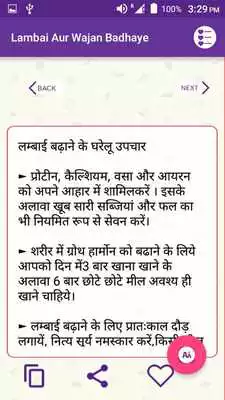 100% 3:29 PM
Lambai Aur Wajan Badhaye
BACK NEXT
लम्बाई बढ़ाने के घरेलू उपचार
► प्रोटीन, कैल्शियम, वसा और आयरन
को अपने आहार में शामिलकरें । इसके
अलावा खूब सारी सब्जियां और फल का
भी नियमित रूप से सेवन करें।
► शरीर में ग्रोथ हार्मोन को बढाने के लिये
आपको दिन में3 बार खाना खाने के
अलावा 6 बार छोटे छोटे मील अवश्य ही
खाने चाहिये।
► लम्बाई बढ़ाने के लिए प्रातःकाल दौड़
लगायें, नित्य सूर्य नमस्कार करें,
Aa